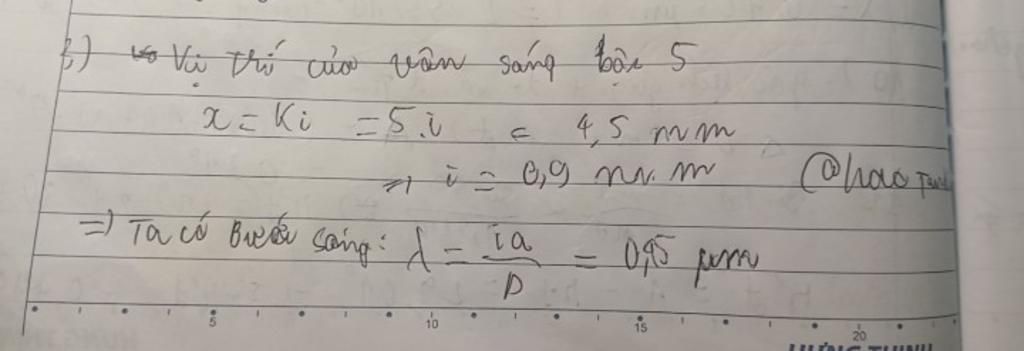 b) Vị trí của vân sáng bậc 5
x = Ki = 5.i = 4,5 mm
=> i = 0,9 mm
=> Ta có Bước sáng: λ = ia / D = 0,45 μm
5 10 15 20
HƯNG THỊNH